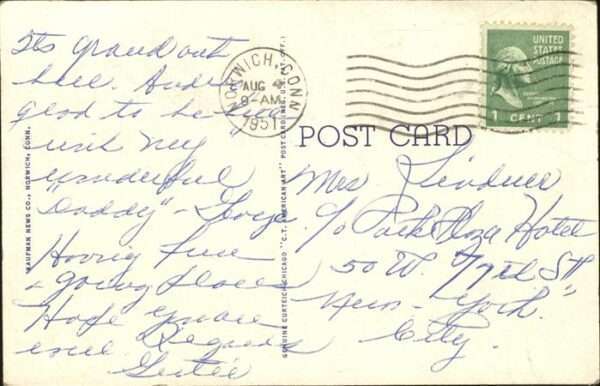 Its grand out
here. And
glad to be
with my
wonderful
"Daddy" -
Having fun
& going places
Hope you are
well Regards
Gertie
KAUFMAN NEWS CO., NORWICH, CONN.
GENUINE CURTEICH-CHICAGO "C.T. AMERICAN ART" POST CARD (REG. U.S. PAT. OFF.)
NORWICH, CONN.
AUG 4
9-AM
1951
UNITED
STATES
POSTAGE
1 CENT 1
POST CARD
Mrs
c/o Park Plaza Hotel
50 W. 77th St
New-York.
City.